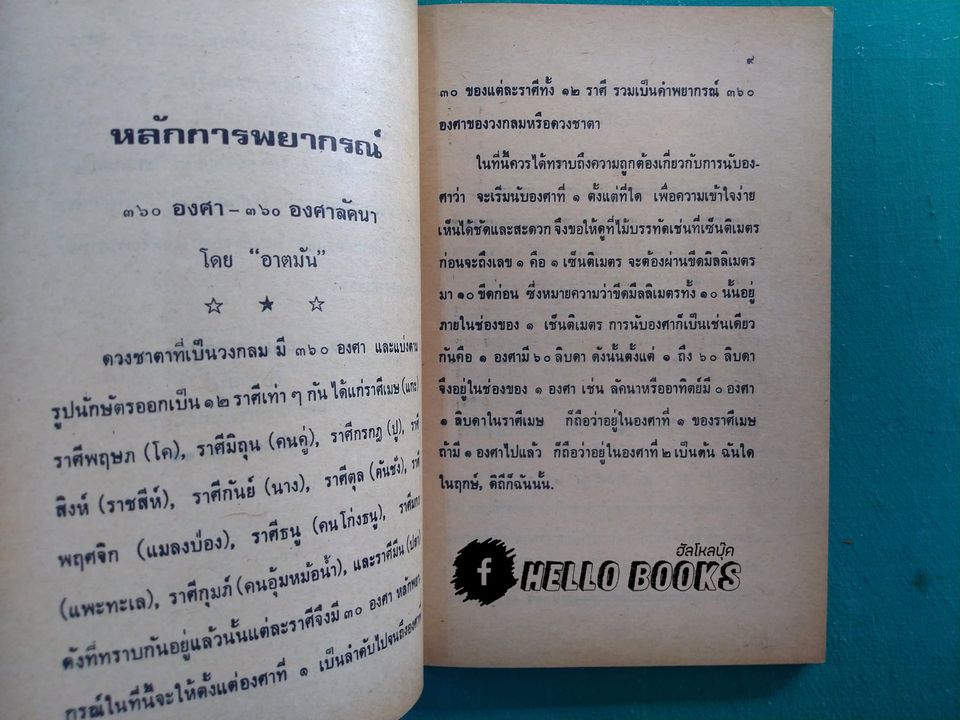 หลักการพยากรณ์
๓๖๐ องศา – ๓๖๐ องศาลัคนา
โดย “อาตมัน”
ดวงชาตาที่เป็นวงกลม มี ๓๖๐ องศา และแบ่งตาม
รูปนักษัตรออกเป็น ๑๒ ราศีเท่า ๆ กัน ได้แก่ราศีเมษ (แกะ)
ราศีพฤษภ (โค), ราศีมิถุน (คนคู่), ราศีกรกฎ (ปู), ราศี
สิงห์ (ราชสีห์), ราศีกันย์ (นาง), ราศีตุล (คันชั่ง), ราศี
พฤศจิก (แมลงป่อง), ราศีธนู (คนโก่งธนู), ราศีมกร
(แพะทะเล), ราศีกุมภ์ (คนอุ้มหม้อน้ำ), และราศีมีน (ปลา)
ดังที่ทราบกันอยู่แล้วนั้นแต่ละราศีจึงมี ๓๐ องศา หลักพยา
กรณ์ในที่นี้จะให้ตั้งแต่องศาที่ ๑ เป็นลำดับไปจนถึงองศาที่
๙
๓๐ ของแต่ละราศีทั้ง ๑๒ ราศี รวมเป็นคำพยากรณ์ ๓๖๐
องศาของวงกลมหรือดวงชาตา
ในที่นี้ควรได้ทราบถึงความถูกต้องเกี่ยวกับการนับอง-
ศาว่า จะเริ่มนับองศาที่ ๑ ตั้งแต่ที่ใด เพื่อความเข้าใจง่าย
เห็นได้ชัดและสะดวก จึงขอให้ดูที่ไม้บรรทัดเช่นที่เซ็นติเมตร
ก่อนจะถึงเลข ๑ คือ ๑ เซ็นติเมตร จะต้องผ่านขีดมิลลิเมตร
มา ๑๐ ขีดก่อน ซึ่งหมายความว่าขีดมิลลิเมตรทั้ง ๑๐ นั้นอยู่
ภายในช่องของ ๑ เซ็นติเมตร การนับองศาก็เป็นเช่นเดียว
กันคือ ๑ องศามี ๖๐ ลิบดา ดังนั้นตั้งแต่ ๑ ถึง ๖๐ ลิบดา
จึงอยู่ในช่องของ ๑ องศา เช่น ลัคนาหรืออาทิตย์มี ๐ องศา
๑ ลิบดาในราศีเมษ ก็ถือว่าอยู่ในองศาที่ ๑ ของราศีเมษ
ถ้ามี ๑ องศาไปแล้ว ก็ถือว่าอยู่ในองศาที่ ๒ เป็นต้น ฉันใด
ในฤกษ์, ดิถีก็ฉันนั้น.
ฮัลโหลบุ๊ค
f HELLO BOOKS